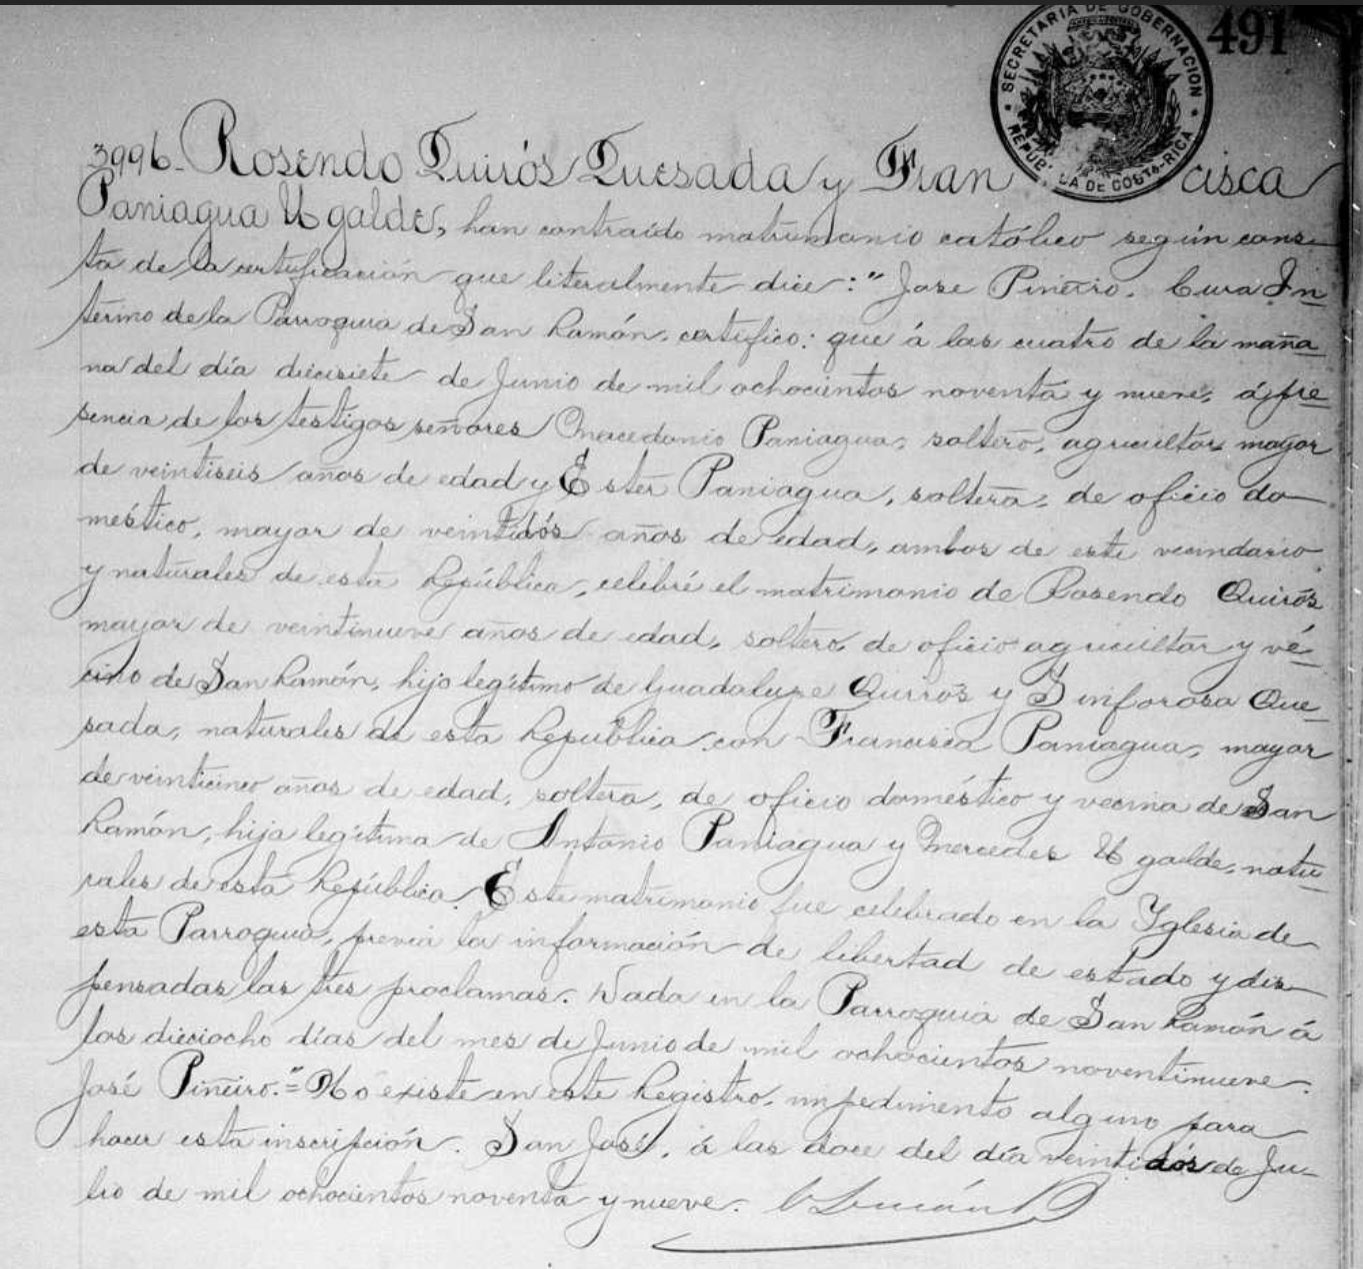 SECRETARIA DE GOBERNACION
REPUB CA DE COSTA-RICA
491
3996- Rosendo Quirós Quesada y Fran cisca
Paniagua Ugalde, han contraído matrimonio católico según cons-
ta de la certificación que literalmente dice: " Jose Piñeiro. Cura In
terino de la Parroquia de San Ramón, certifico: que á las cuatro de la maña
na del día diecisiete de Junio de mil ochocientos noventa y nueve, á pre
sencia de los testigos señores Macedonio Paniagua, soltero, agricultor mayor
de veintiseis años de edad y Ester Paniagua, soltera, de oficio do-
méstico, mayor de veintidós años de edad, ambos de este vecindario
y naturales de esta República, celebré el matrimonio de Rosendo Quirós
mayor de veintinueve años de edad, soltero, de oficio agricultor y ve-
cino de San Ramón, hijo legítimo de Guadalupe Quirós y Sinforosa Que-
sada, naturales de esta República con Francisca Paniagua, mayor
de veinticinco años de edad, soltera, de oficio doméstico y vecina de San
Ramón, hija legítima de Antonio Paniagua y Mercedes Ugalde, natu-
rales de esta República. Este matrimonio fue celebrado en la Yglesia de
esta Parroquia, previa la información de libertad de estado y dis-
pensadas las tres proclamas. Dada en la Parroquia de San Ramón á
los dieciocho días del mes de Junio de mil ochocientos noventinueve.
José Piñeiro." = No existe en este Registro, impedimento alguno para
hacer esta inscripción. San José, á las doce del día veintidós de Ju-
lio de mil ochocientos noventa y nueve.